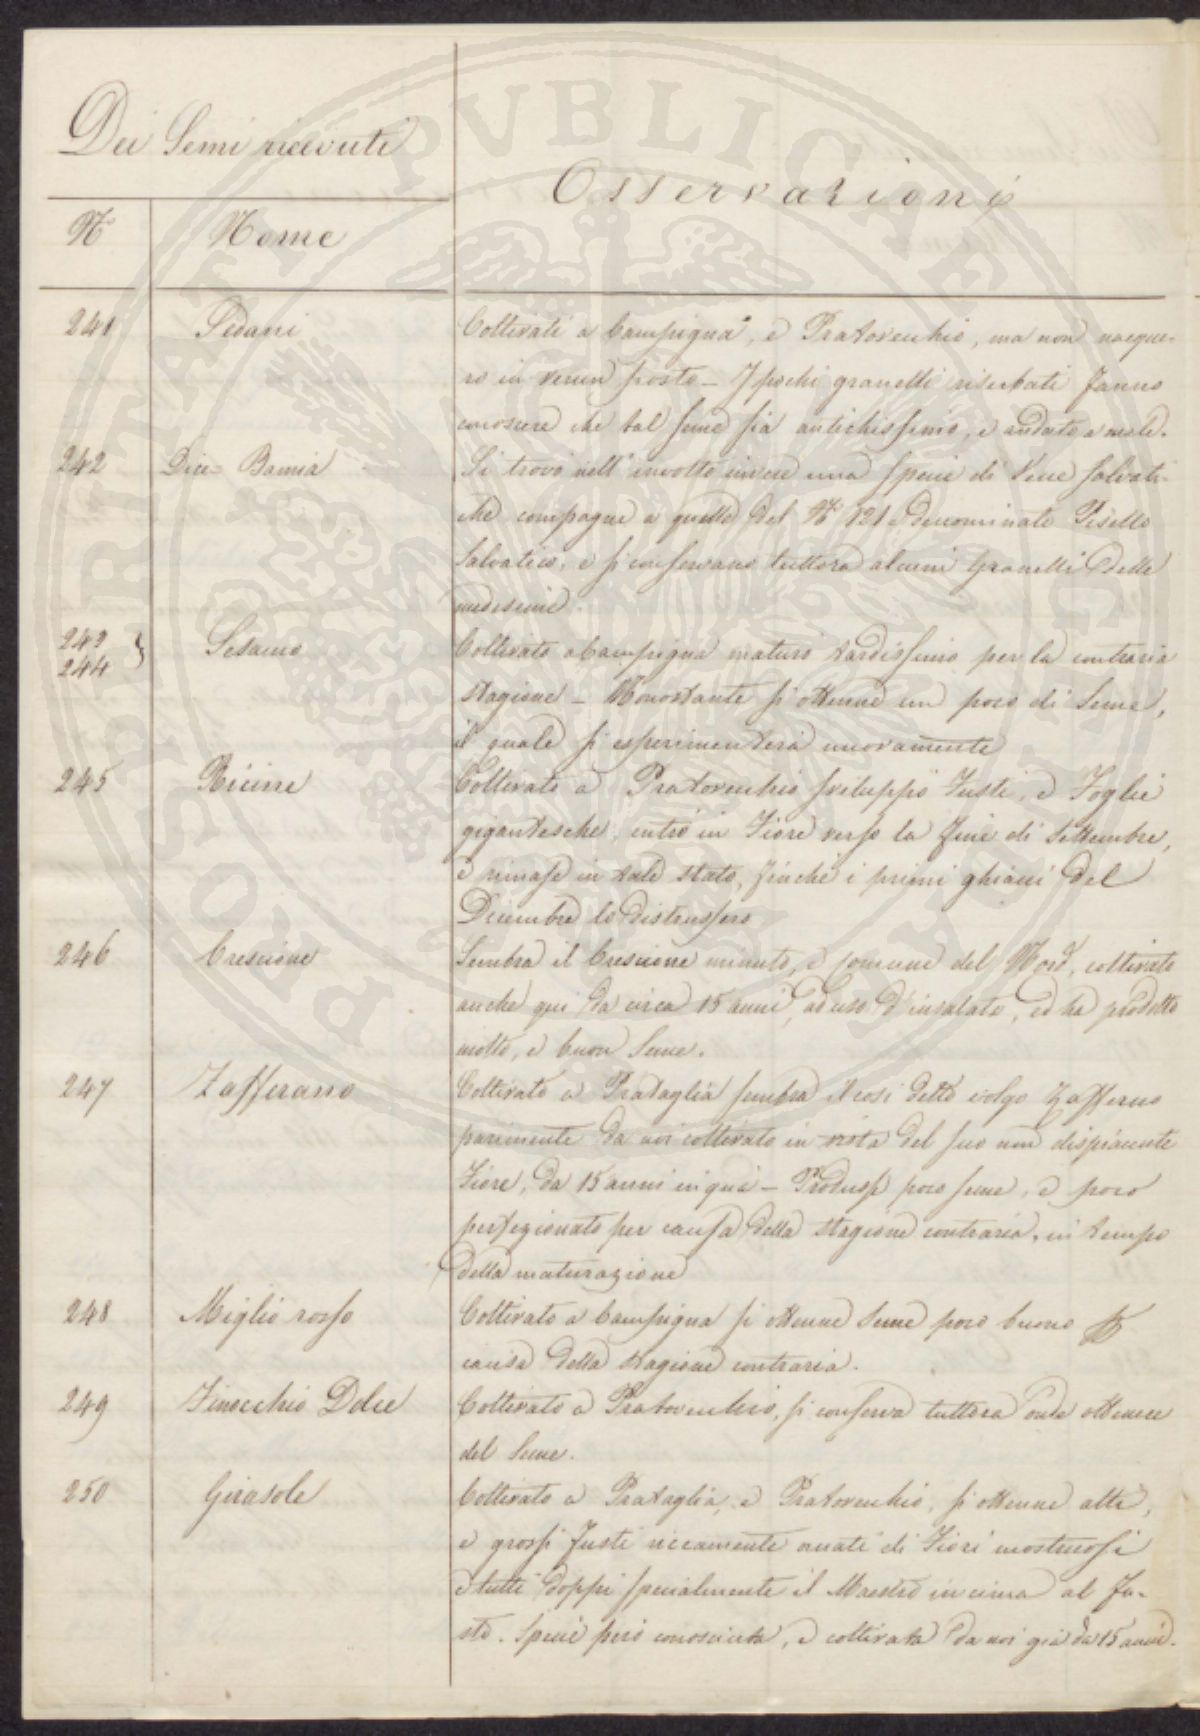 Dei Semi ricevuti
Osservazioni
N.º
Nome
241
Pedani
Coltivati a Campigna, e Pratovecchio, ma non nacque-
ro in verun posto - I pochi granelli riserbati fanno
conoscere che tal seme sia antichissimo, e andato a male.
242
Dice Bamia
Si trovò nell'involto invece una specie di Vecce salvati-
che compagne a quelle del N.º 121 denominato Pisello
Salvatico, e si conservano tuttora alcuni granelli delle
medesime.
243
244 }
Sesamo
Coltivato a Campigna maturò tardissimo per la contraria
stagione - Nonostante si ottenne un poco di Seme,
il quale si esperimenterà nuovamente
245
Ricino
Coltivato a Pratovecchio sviluppò Fusti, e Foglie
gigantesche, entrò in Fiore verso la fine di Settembre,
e rimase in tale stato, finchè i primi ghiacci del
Dicembre lo distrussero
246
Crescione
Sembra il Crescione minuto, e comune del Nord, coltivato
anche qui da circa 15 anni, ad uso d'insalata, ed ha prodotto
molto, e buon Seme.
247
Zafferano
Coltivato a Prataglia sembra il così detto volgo Zafferano
parimente da noi coltivato in vista del suo non dispiacente
Fiore, da 15 anni in quà - Produsse poco seme, e poco
perfezionato per causa della stagione contraria, in tempo
della maturazione
248
Miglio rosso
Coltivato a Campigna si ottenne Seme poco buono
causa della stagione contraria.
249
Finocchio Dolce
Coltivato a Pratovecchio, si conserva tuttora onde ottenere
del Seme.
250
Girasole
Coltivato a Prataglia, e Pratovecchio, si ottenne alti,
e grossi fusti riccamente ornati di Fiori mostruosi
e tutti doppi specialmente il Maestro in cima al Fu-
sto. Specie però conosciuta, e coltivata da noi già da 15 anni.